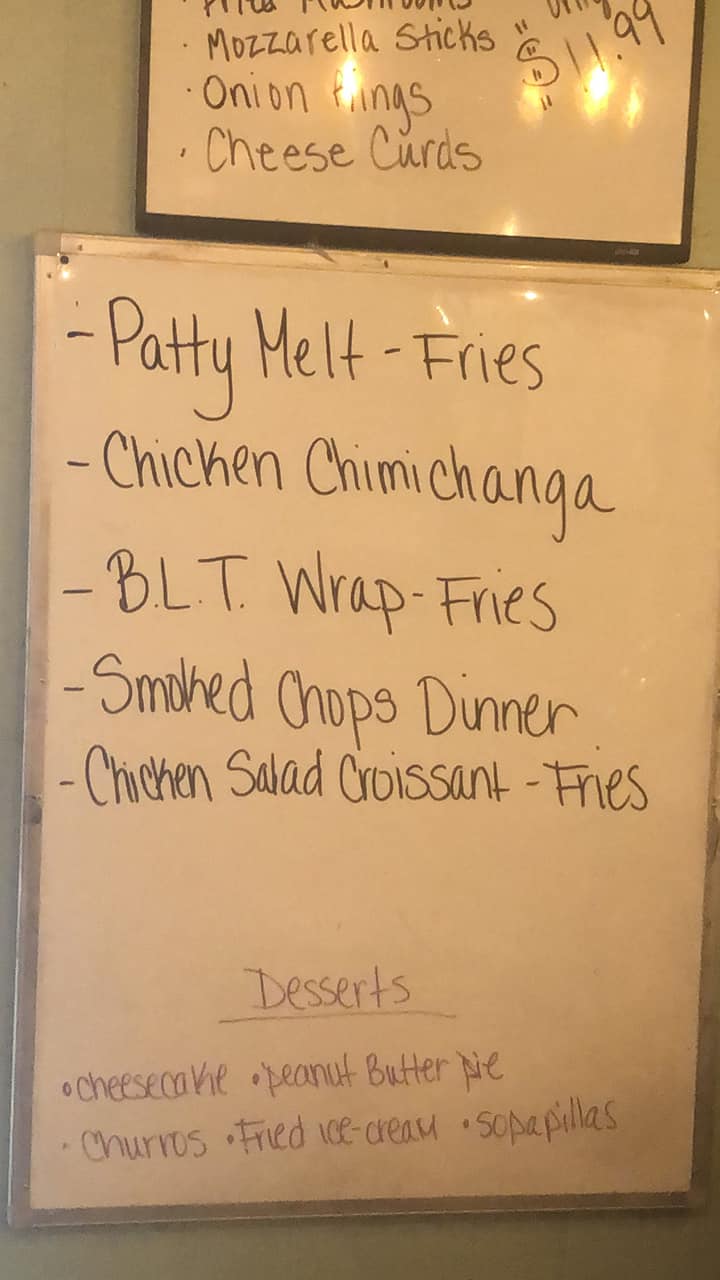 · Fried Mushrooms
· Mozzarella Sticks
only $11.99
· Onion Rings
· Cheese Curds
- Patty Melt - Fries
- Chicken Chimichanga
- B.L.T. Wrap - Fries
- Smoked Chops Dinner
- Chicken Salad Croissant - Fries
Desserts
• cheesecake • peanut Butter pie
• Churros • Fried ice-cream • sopapillas